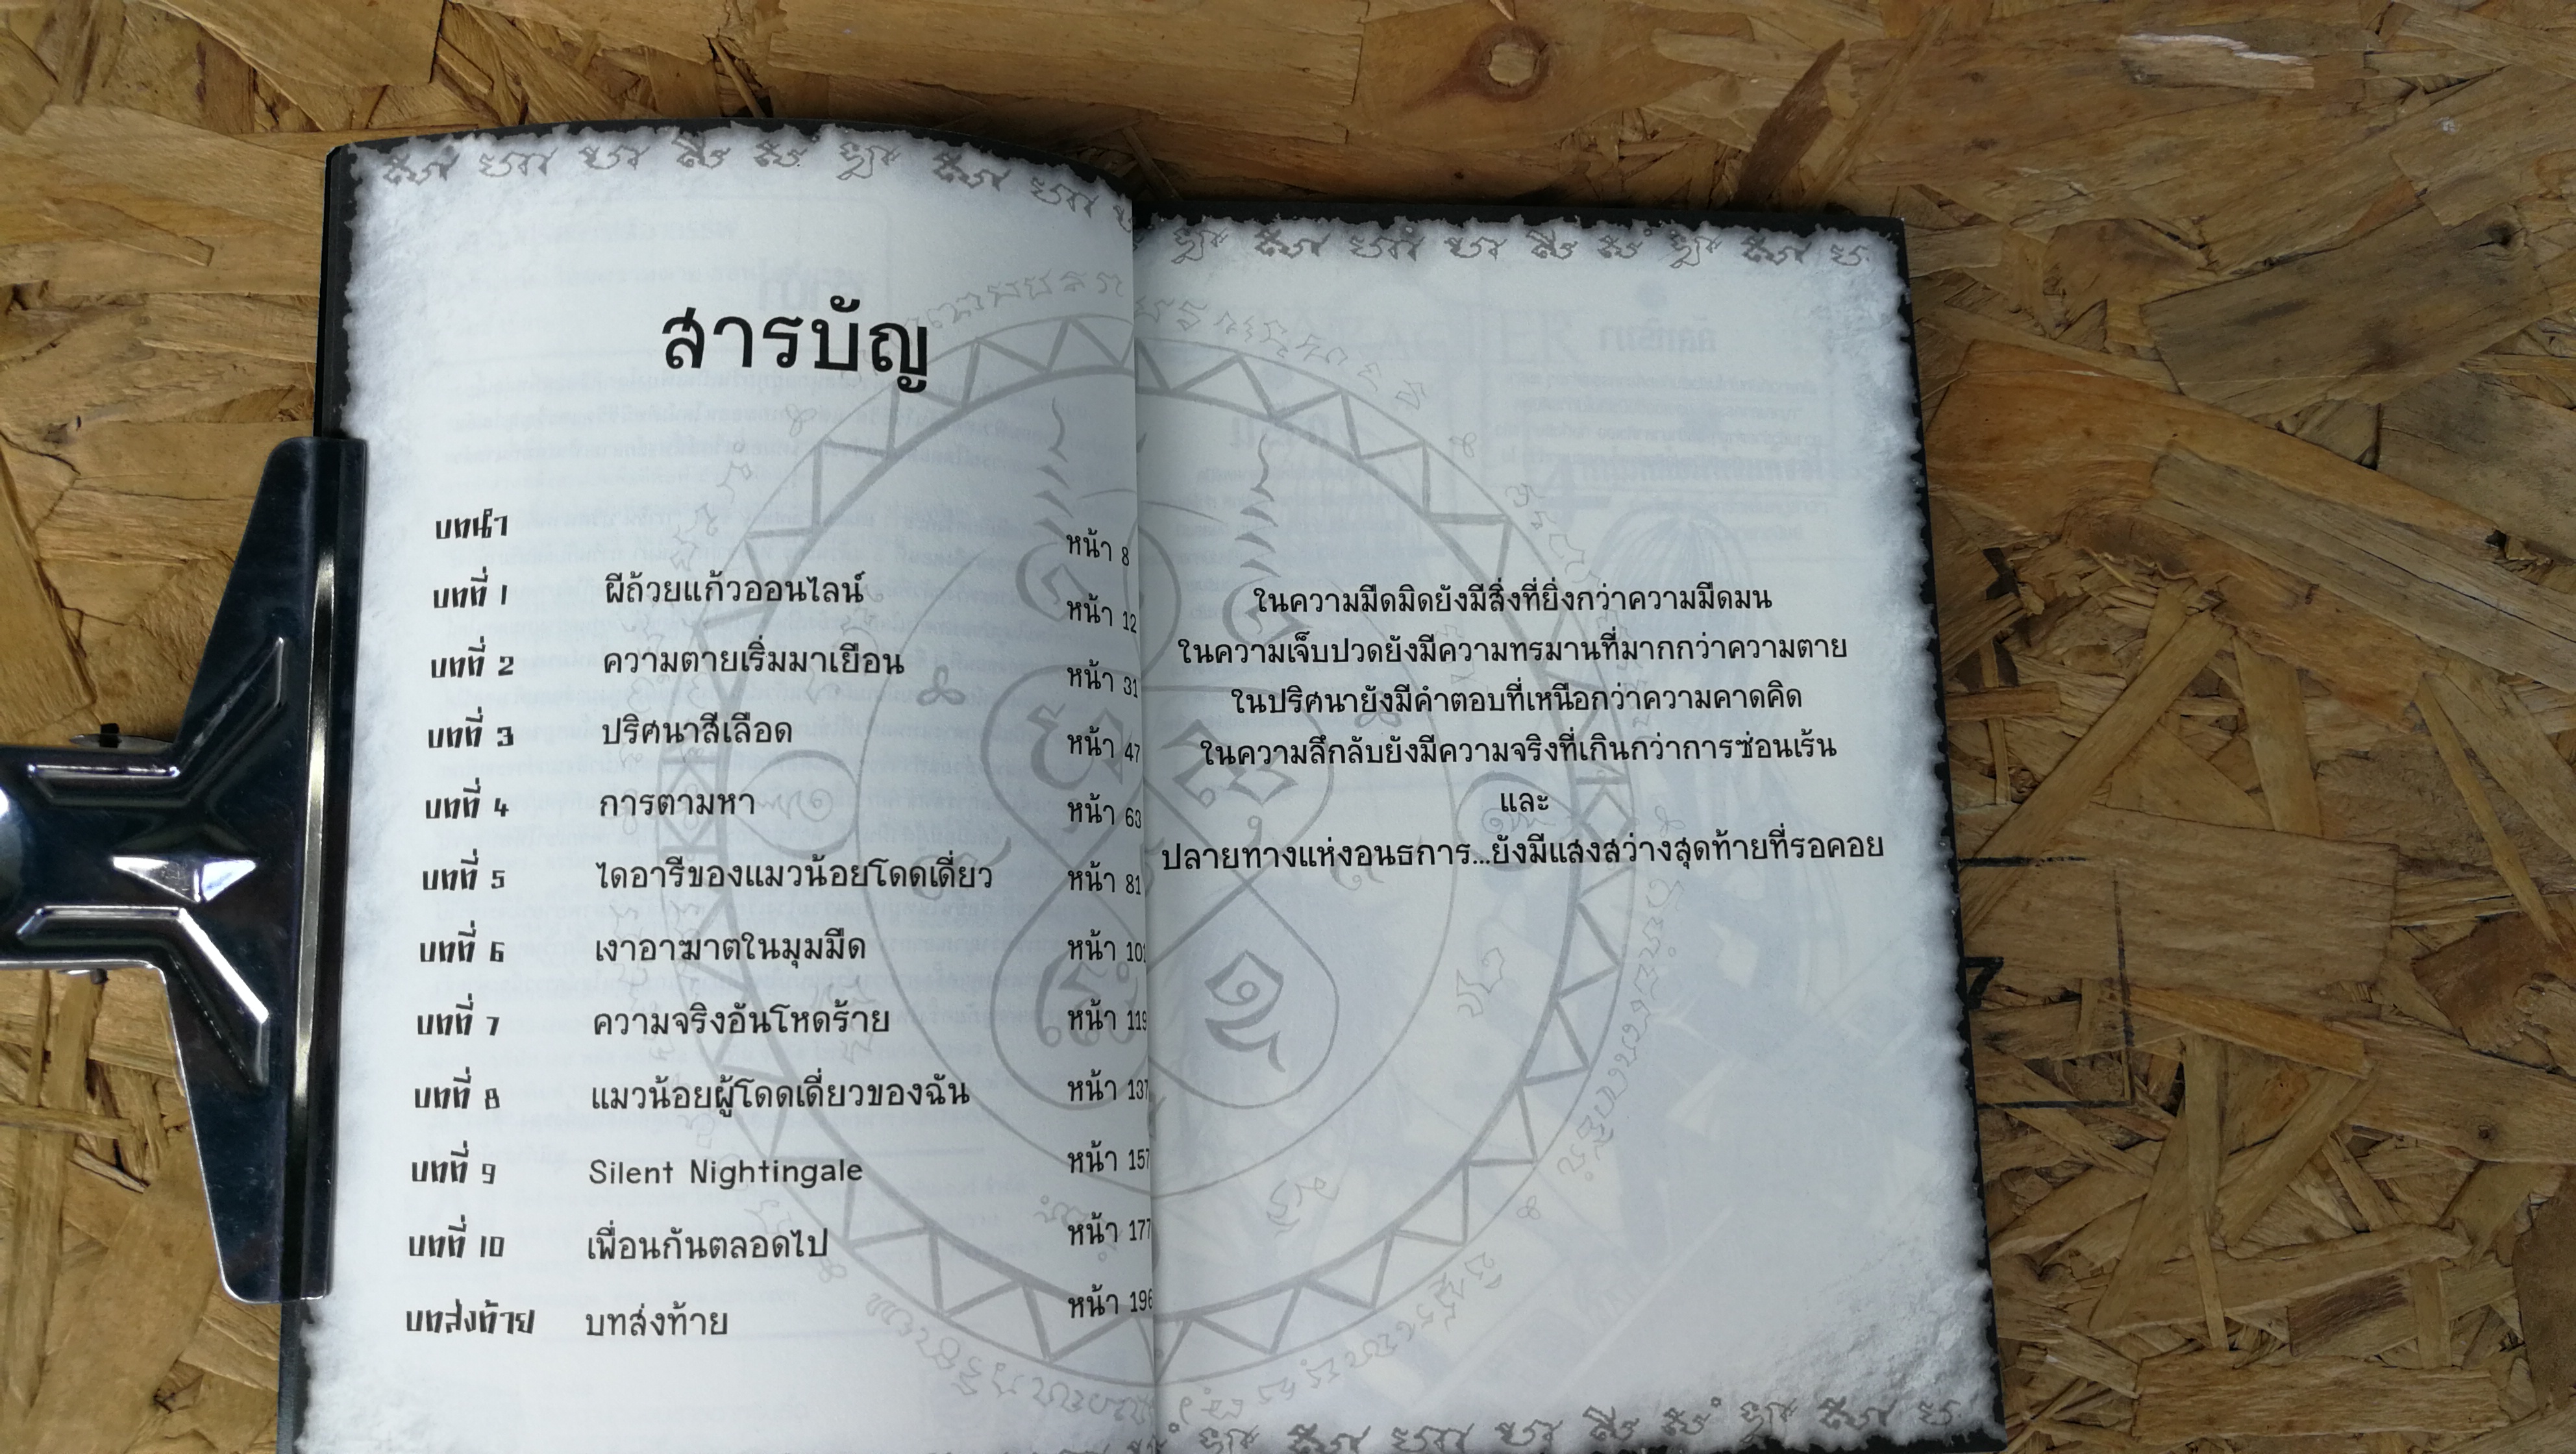 สารบัญ
บทนำ หน้า 8
บทที่ 1 ผีถ้วยแก้วออนไลน์ หน้า 12
บทที่ 2 ความตายเริ่มมาเยือน หน้า 31
บทที่ 3 ปริศนาสีเลือด หน้า 47
บทที่ 4 การตามหา หน้า 63
บทที่ 5 ไดอารีของแมวน้อยโดดเดี่ยว หน้า 81
บทที่ 6 เงาอาฆาตในมุมมืด หน้า 101
บทที่ 7 ความจริงอันโหดร้าย หน้า 119
บทที่ 8 แมวน้อยผู้โดดเดี่ยวของฉัน หน้า 137
บทที่ 9 Silent Nightingale หน้า 157
บทที่ 10 เพื่อนกันตลอดไป หน้า 177
บทส่งท้าย บทส่งท้าย หน้า 196
ในความมืดมิดยังมีสิ่งที่ยิ่งกว่าความมืดมน
ในความเจ็บปวดยังมีความทรมานที่มากกว่าความตาย
ในปริศนายังมีคำตอบที่เหนือกว่าความคาดคิด
ในความลึกลับยังมีความจริงที่เกินกว่าการซ่อนเร้น
และ
ปลายทางแห่งอนธการ...ยังมีแสงสว่างสุดท้ายที่รอคอย